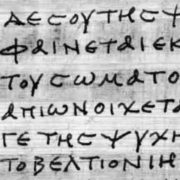 ΔΕϹΟΥΤΗϹΨ
ΦΑΙΝΕΤΑΙΕΚ
ΤΟΥϹΩΜΑΤΟ
ΑΠΙΩΝΟΙΧΕΤΑ
ΓΕΤΗϹΨΥΧΗ
ΤΟΒΕΛΤΙΟΝΙΗ